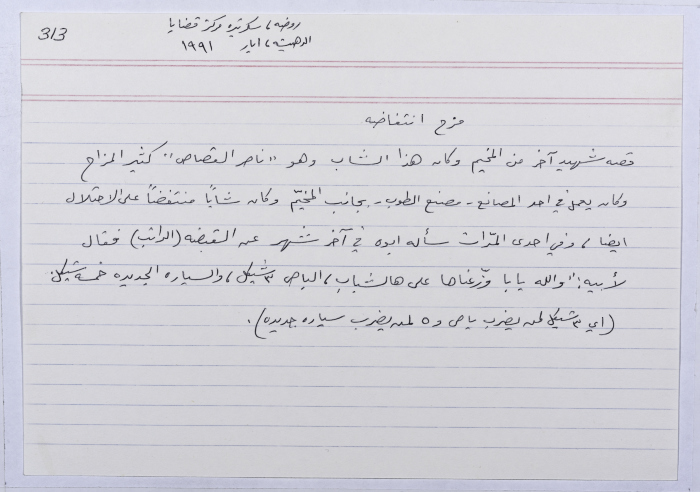 313
روضه، سكرتيره مركز قضايا
الدهيشه، ايار ١٩٩١
مزح انتفاضه
قصه شهيد آخر من المخيم وكان هذا الشاب وهو "ناصر القصاص" كثير المزاح
وكان يعمل في احد المصانع - مصنع الطوب - بجانب المخيّم وكان شابًا منتفضًا على الاحتلال
ايضا، وفي احدى المرّات سأله ابوه في آخر شهر عن القبضه (الراتب) فقال
لأبيه: "والله يابا وزّعناها على هالشباب، الباص ٣ شيكل، والسياره الجديده خمسة شيكل.
(اي ٣ شيكل لمن يضرب باص و ٥ لمن يضرب سياره جديده).